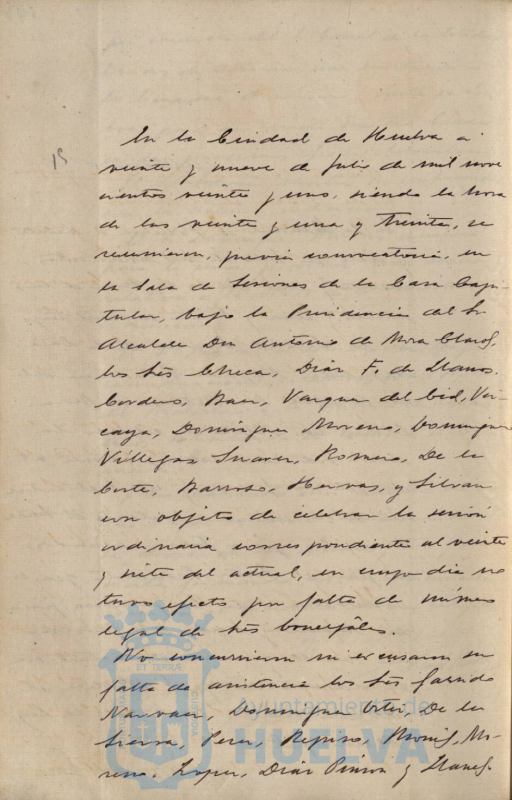 15
En la Ciudad de Huelva a
veinte y nueve de Julio de mil nove
cientos veinte y uno, siendo la hora
de las veinte y una y treinta, se
reunieron, previa convocatoria, en
la Sala de Sesiones de la Casa Capi-
tular, bajo la Presidencia del Sr.
Alcalde Don Antonio de Mora Claros,
los Srs Checa, Diaz F. de Llanos,
Cordero, Baer, Vazquez del Cid, Viz-
caya, Dominguez Moreno, Dominguez
Villegas Suarez, Romero, De la
Corte, Barroso, Hervas, y Silvan
con objeto de celebrar la sesión
ordinaria correspondiente al veinte
y siete del actual, en cuyo dia no
tuvo efecto por falta de número
legal de Srs Concejales.
No concurrieron ni excusaron su
falta de asistencia los Srs Garrido
Narvaez, Dominguez Ortiz, De la
Sierra, Perez, Repiso, Moniz, Mo-
reno, Lopez, Diaz Pinzon y Llanes.
ET TERRÆ
Ayuntamiento de
HUELVA